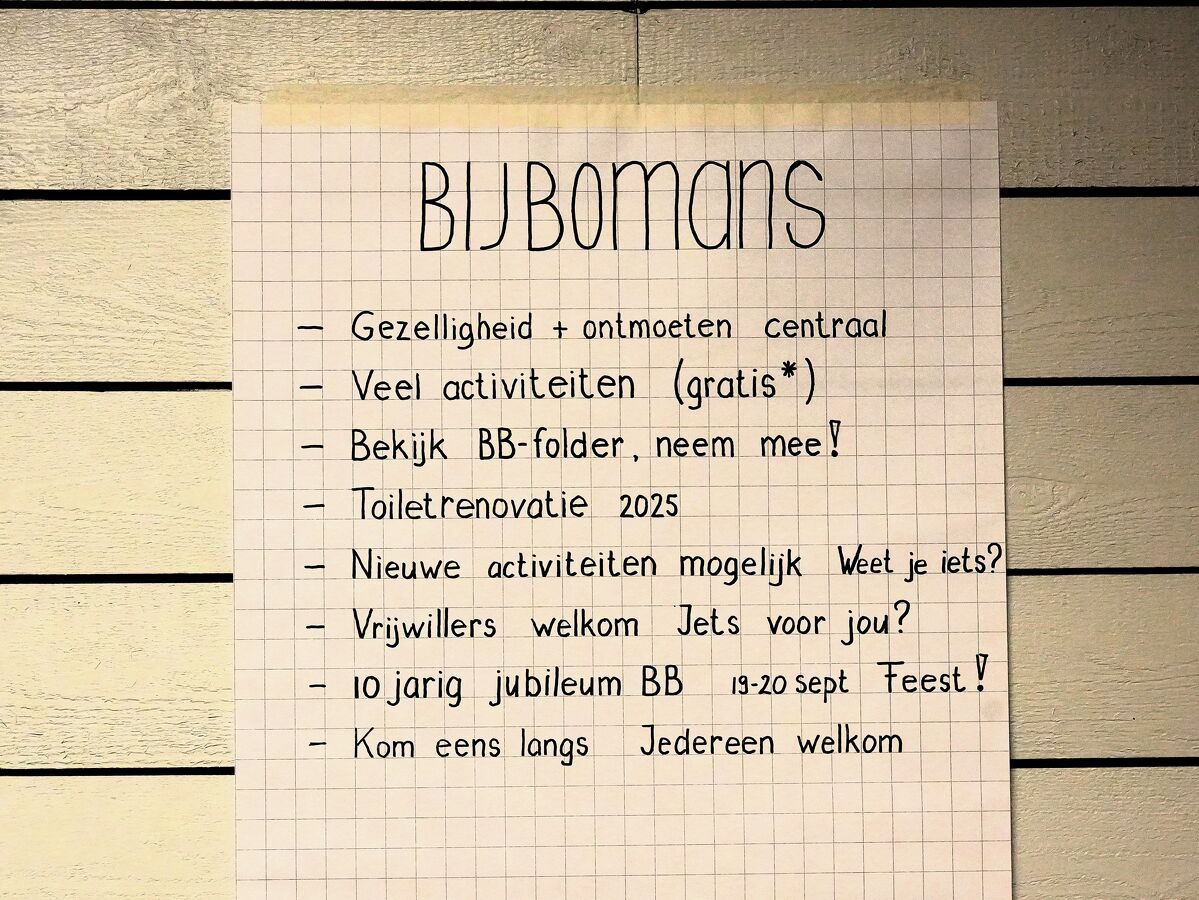 BIJBOmans
- Gezelligheid + ontmoeten centraal
- Veel activiteiten (gratis*)
- Bekijk BB-folder, neem mee!
- Toiletrenovatie 2025
- Nieuwe activiteiten mogelijk Weet je iets?
- Vrijwillers welkom Iets voor jou?
- 10 jarig jubileum BB 19-20 sept Feest!
- Kom eens langs Iedereen welkom